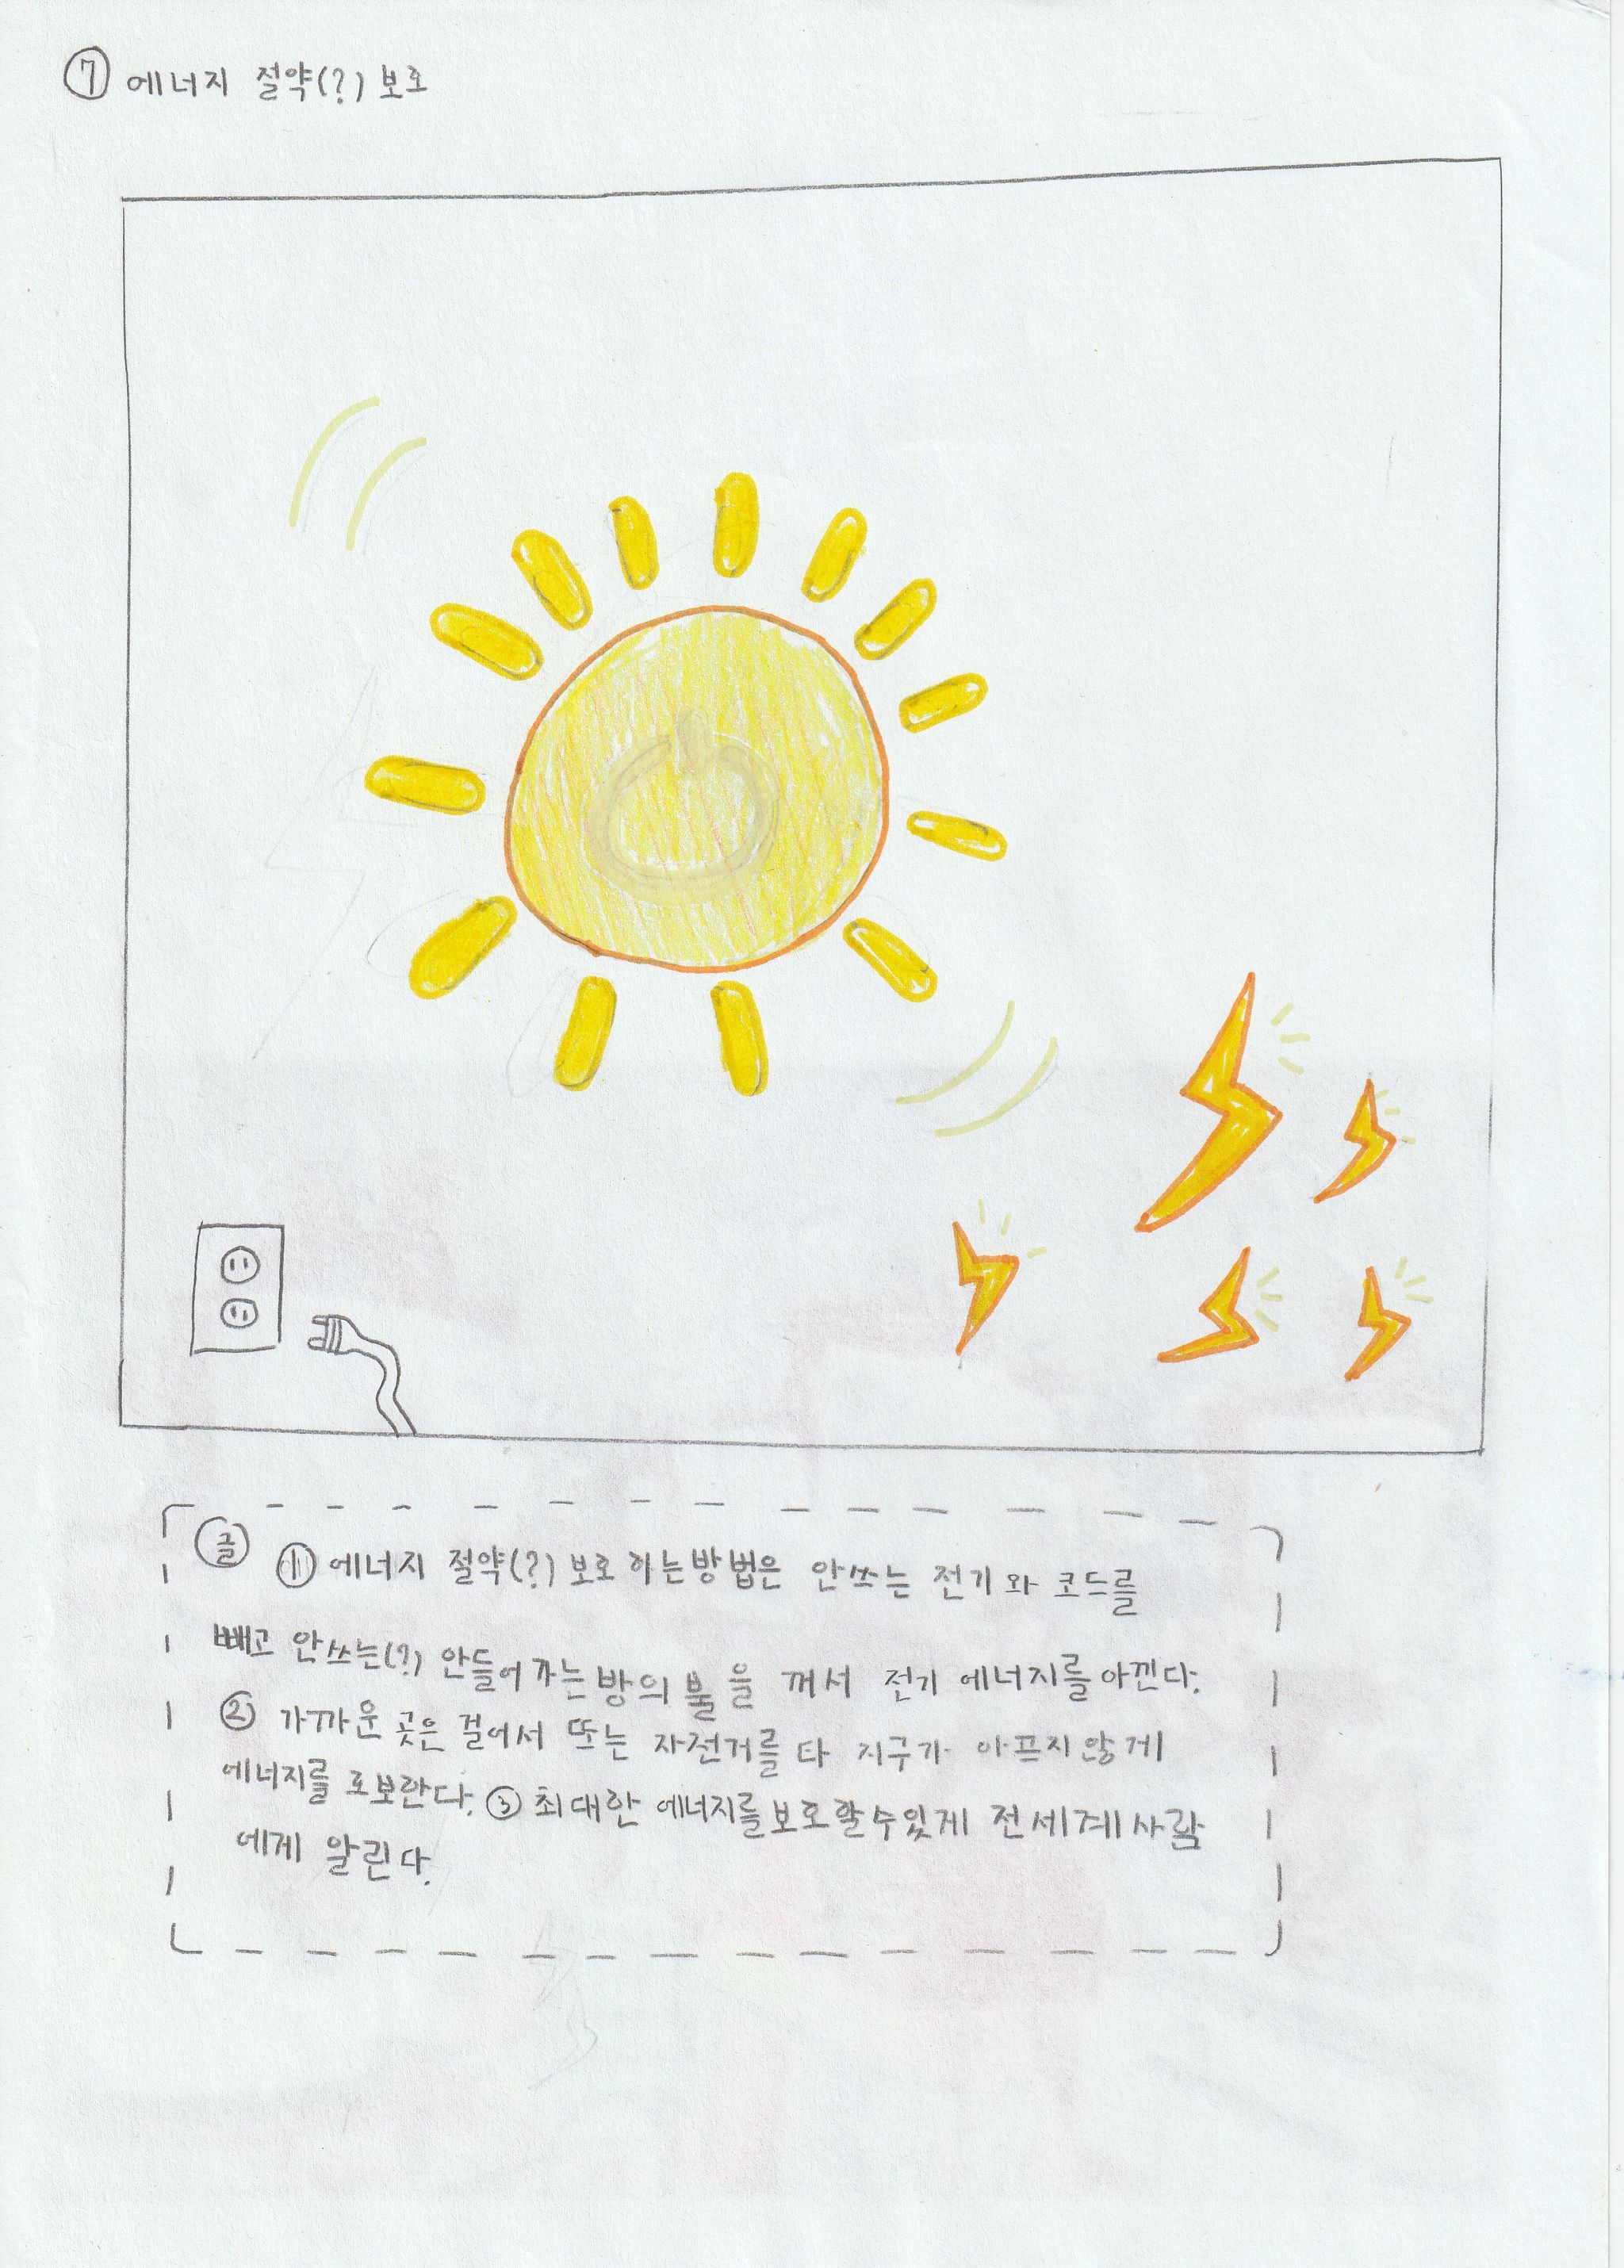 ⑦ 에너지 절약(?) 보호
글 ① 에너지 절약(?) 보호 하는방법은 안쓰는 전기와 코드를
빼고 안쓰는(?) 안들어가는방의 불을 꺼서 전기 에너지를아낀다.
② 가까운 곳은 걸어서 또는 자전거를 타 지구가 아프지않게
에너지를 로보란다. ③ 최대한 에너지를보호할수있게 전세계사람
에게 알린다.